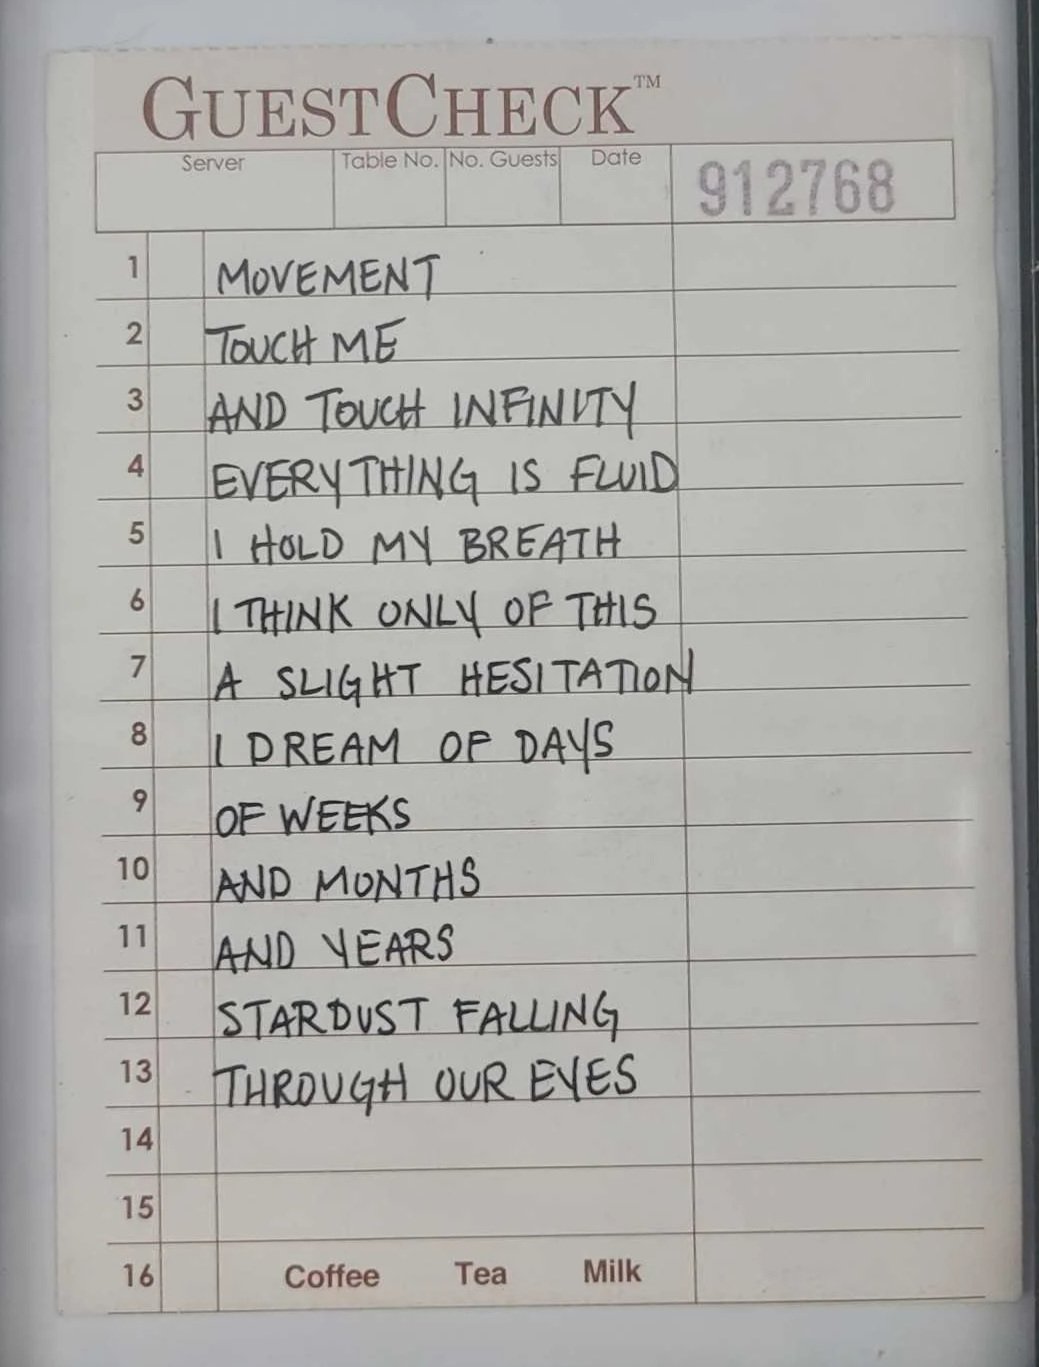 GUESTCHECK™
Server Table No. No. Guests Date 912768
1 MOVEMENT
2 TOUCH ME
3 AND TOUCH INFINITY
4 EVERYTHING IS FLUID
5 I HOLD MY BREATH
6 I THINK ONLY OF THIS
7 A SLIGHT HESITATION
8 I DREAM OF DAYS
9 OF WEEKS
10 AND MONTHS
11 AND YEARS
12 STARDUST FALLING
13 THROUGH OUR EYES
14
15
16 Coffee Tea Milk